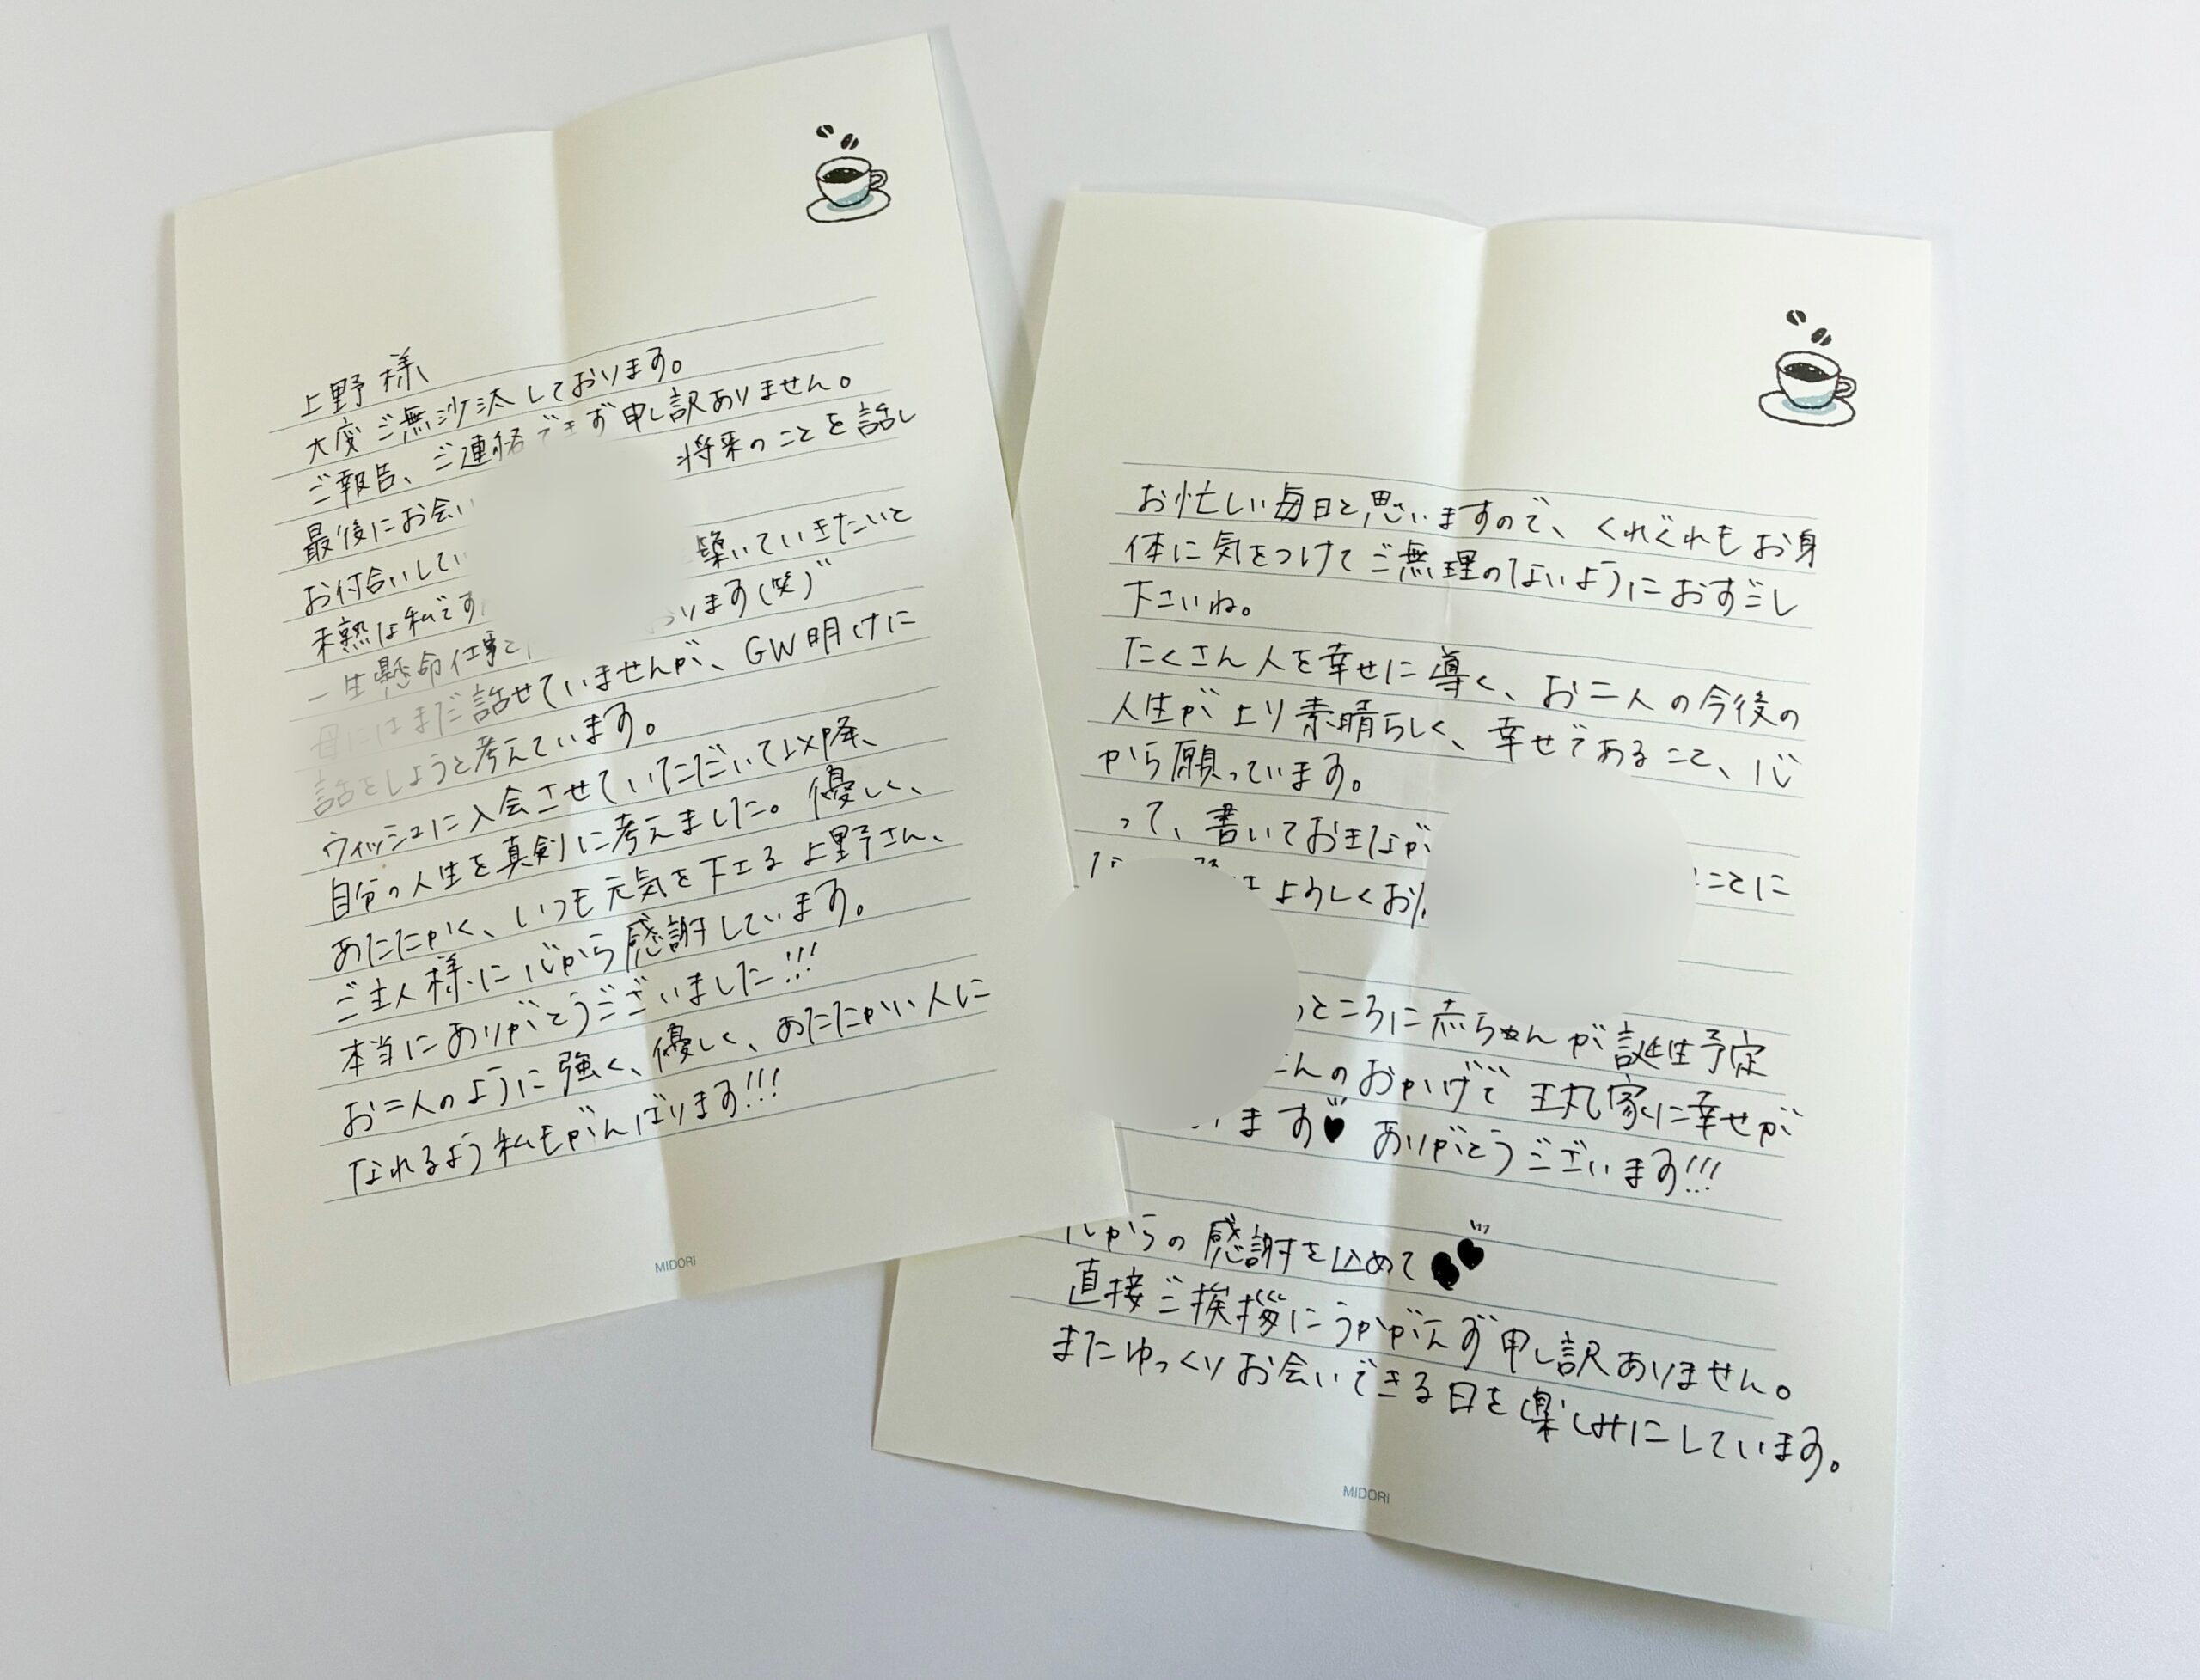 上野様
大変ご無沙汰しております。
ご報告、ご連絡できず申し訳ありません。
最後にお会い 将来のことを話し
お付合いしてい 築いていきたいと
未熟な私です ります(笑)
一生懸命仕事
母にはまだ話せていませんが、GW明けに
話をしようと考えています。
ウィッシュに入会させていただいて以降、
自分の人生を真剣に考えました。優しく、
あたたかく、いつも元気を下さる上野さん、
ご主人様に心から感謝しています。
本当にありがとうございました!!!
お二人のように強く、優しく、あたたかい人に
なれるよう私もがんばります!!!
MIDORI
お忙しい毎日と思いますので、くれぐれもお身
体に気をつけてご無理のないようにおすごし
下さいね。
たくさん人を幸せに導く、お二人の今後の
人生がより素晴らしく、幸せであること、心
から願っています。
って、書いておきなが ことに
よろしくお
ところに赤ちゃんが誕生予定
さんのおかげで王丸家に幸せが
います♥ ありがとうございます!!!
心からの感謝を込めて♥♥
直接ご挨拶にうかがえず申し訳ありません。
またゆっくりお会いできる日を楽しみにしています。
MIDORI